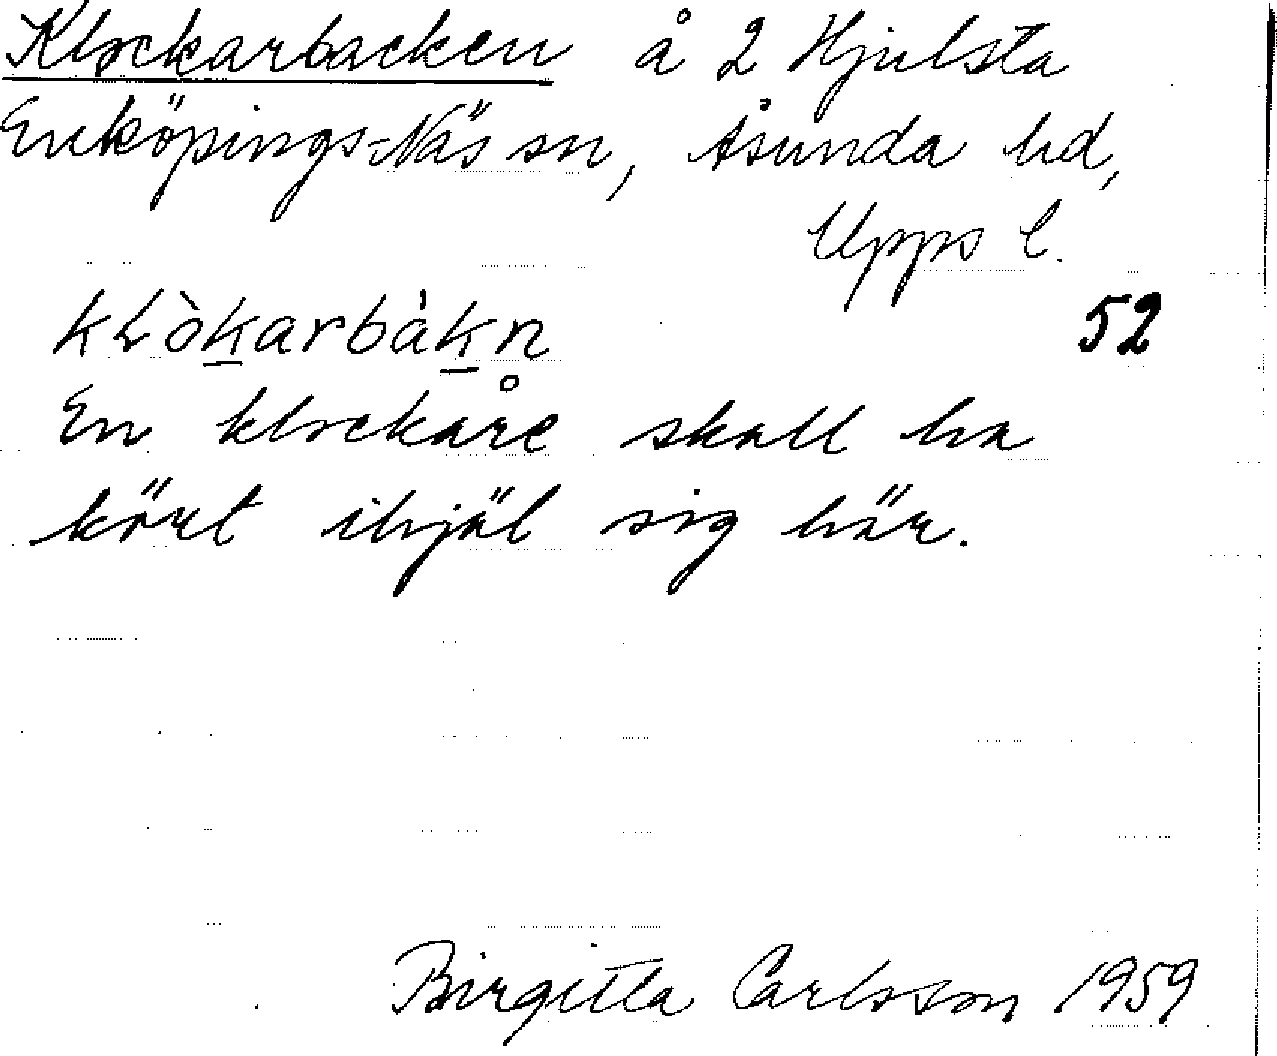 Klockarbacken å 2 Hjulsta
Enköpings-Näs sn, Åsunda hd,
Upps l.
kLòk̲arbàk̲n̥ 52
En klockare skall ha
kört ihjäl sig här.
Birgitta Carlsson 1959